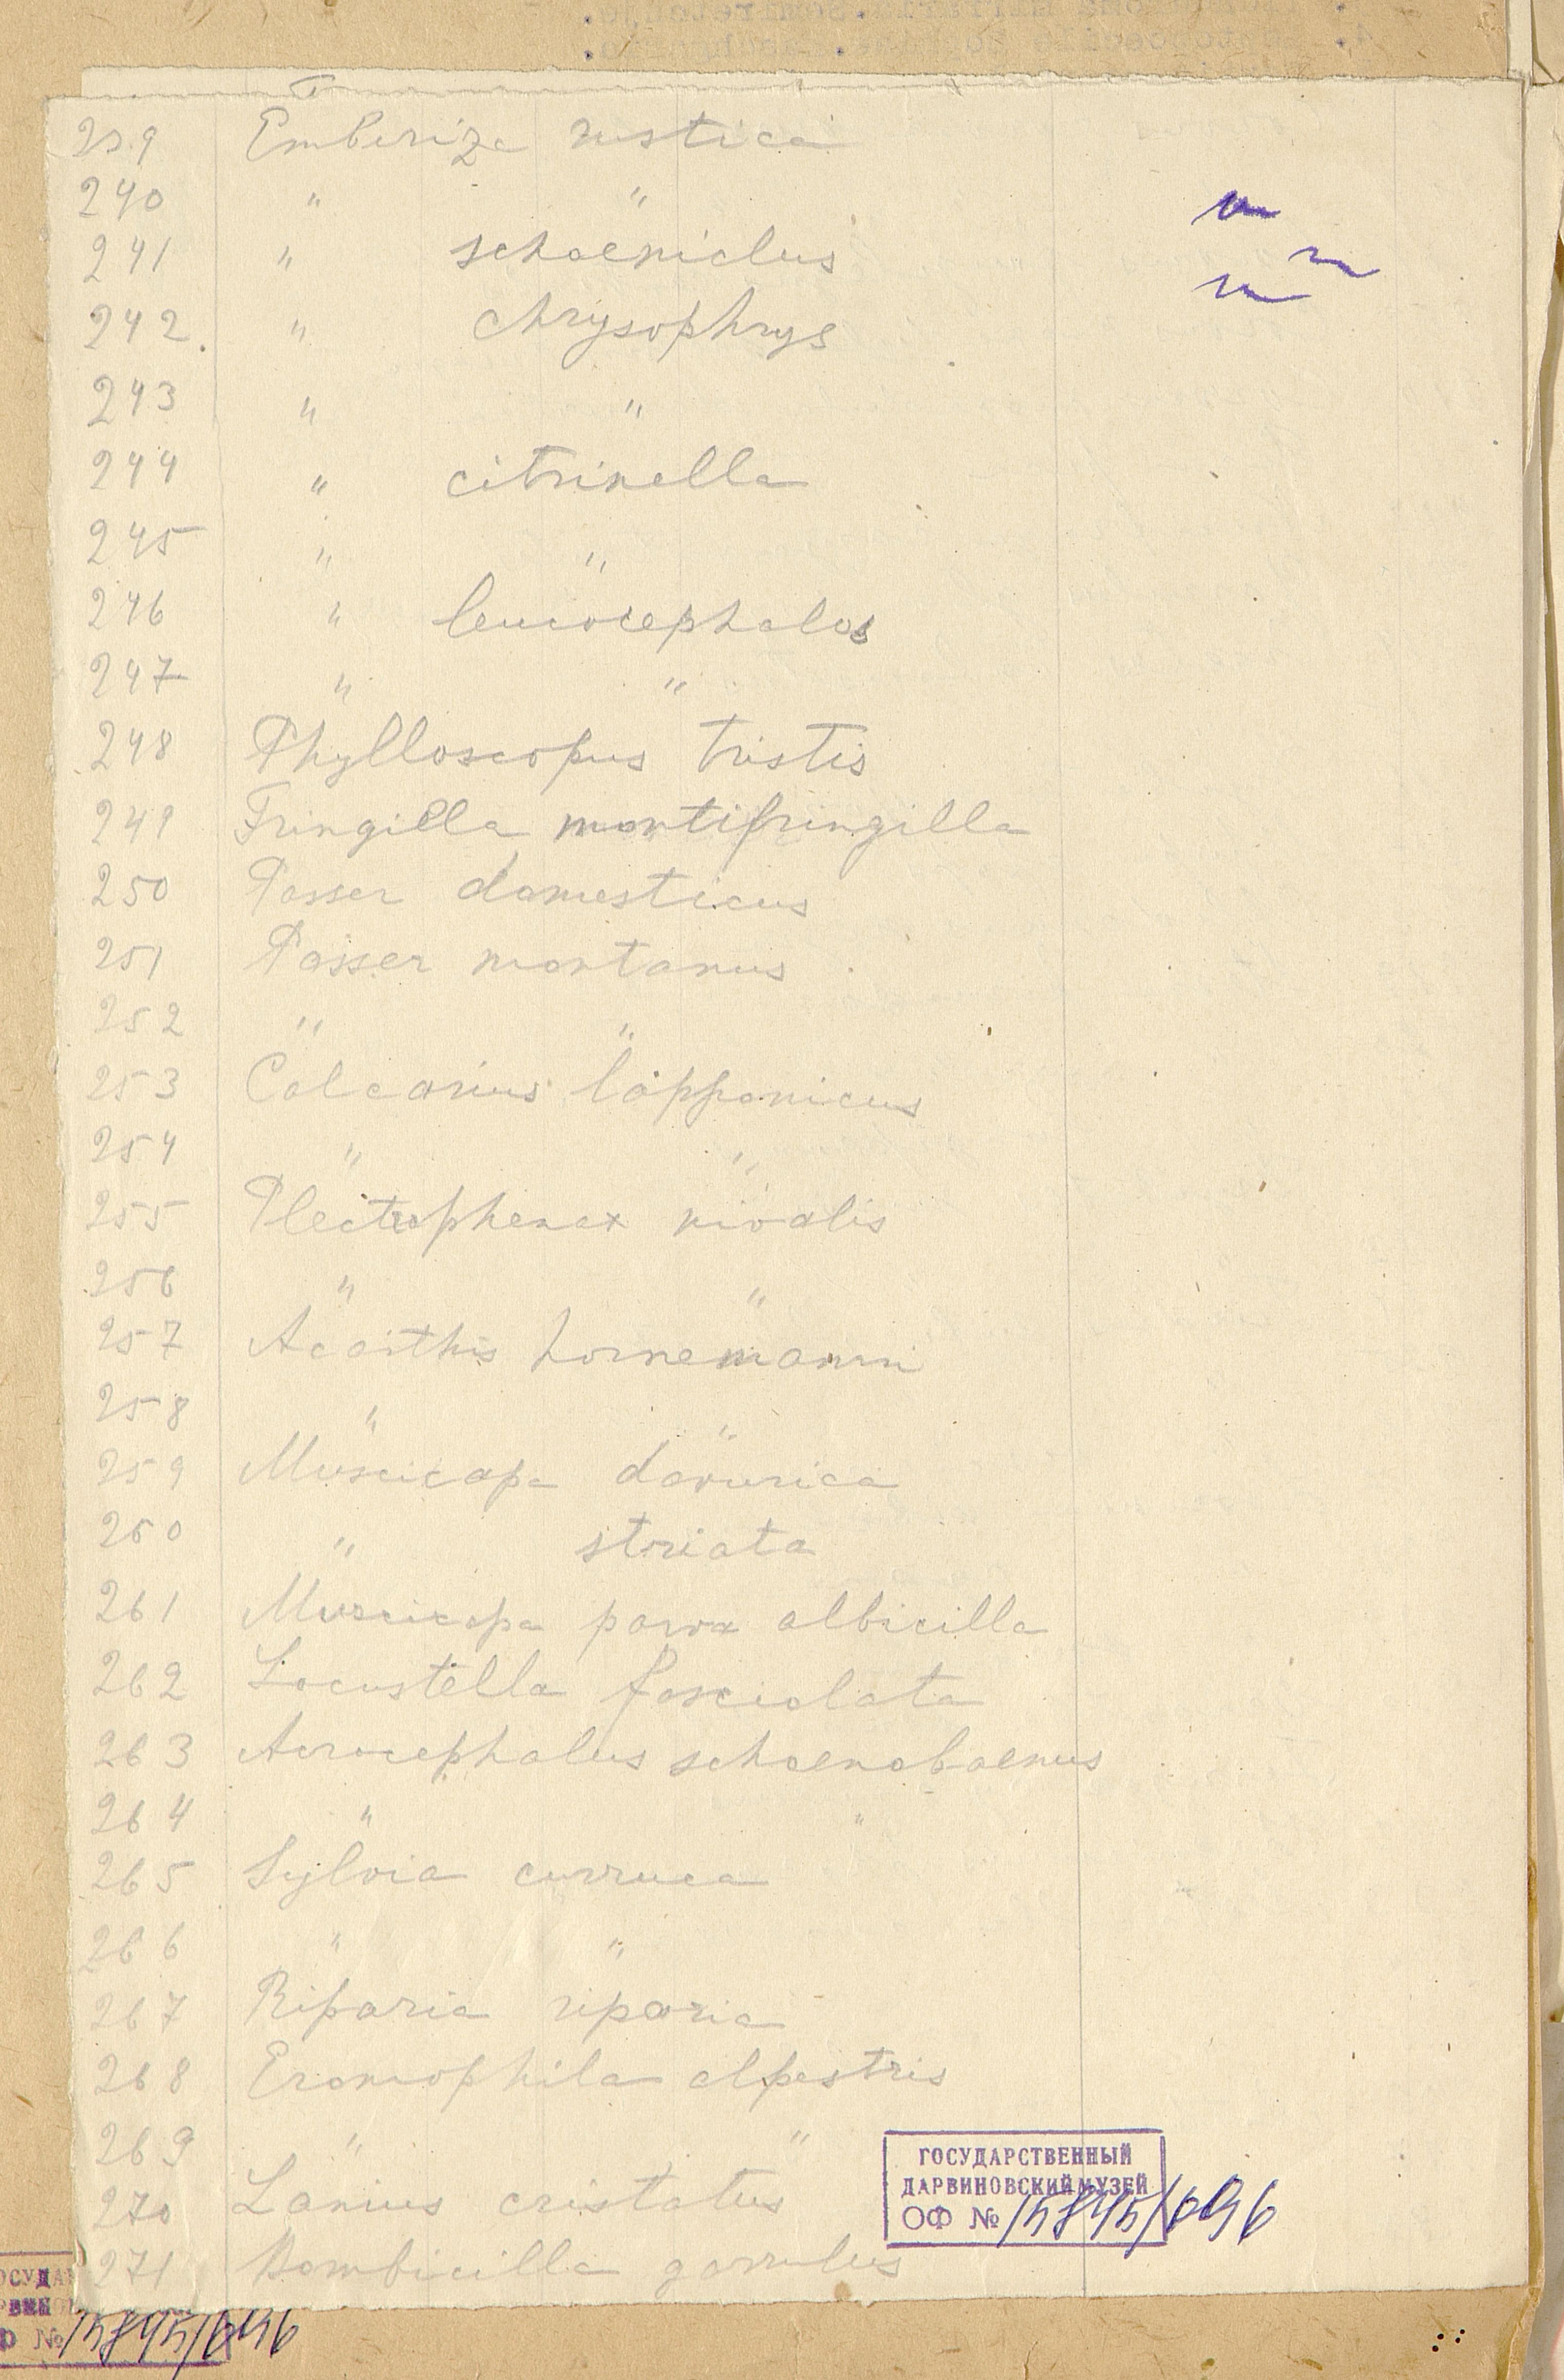 239 Emberiza rustica
240 " "
241 " schoeniclus
242. " chrysophrys
243 " "
244 " citrinella
245 " "
246 " leucocephalos
247 " "
248 Phylloscopus tristis
249 Fringilla montifringilla
250 Passer domesticus
251 Passer montanus
252 " "
253 Calcarius lapponicus
254 " "
255 Plectrophenax nivalis
256 " "
257 Acanthis hornemanni
258 " "
259 Muscicapa davurica
260 " striata
261 Muscicapa parva albicilla
262 Locustella fasciolata
263 Acrocephalus schoenobaenus
264 " "
265 Sylvia curruca
266 " "
267 Riparia riparia
268 Eremophila alpestris
269 " "
270 Lanius cristatus
271 Bombicilla garrulus
ГОСУДАРСТВЕННЫЙ
ДАРВИНОВСКИЙ МУЗЕЙ
ОФ № 15845/696